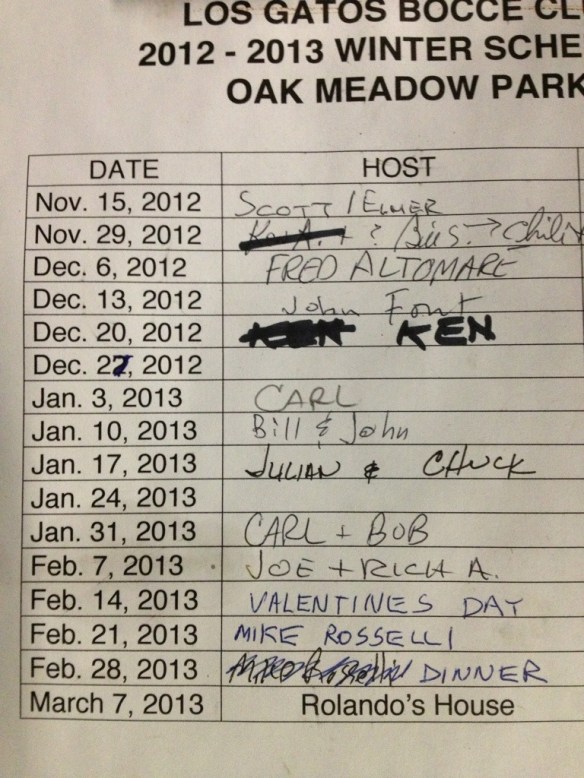 LOS GATOS BOCCE CL
2012 - 2013 WINTER SCHE
OAK MEADOW PARK
DATE HOST
Nov. 15, 2012 SCOTT / ELMER
Nov. 29, 2012 + ? → Chili
Dec. 6, 2012 FRED ALTOMARE
Dec. 13, 2012 John Font
Dec. 20, 2012 KEN KEN
Dec. 27, 2012
Jan. 3, 2013 CARL
Jan. 10, 2013 Bill & John
Jan. 17, 2013 JULIAN & CHUCK
Jan. 24, 2013
Jan. 31, 2013 CARL + BOB
Feb. 7, 2013 JOE + RICH A.
Feb. 14, 2013 VALENTINES DAY
Feb. 21, 2013 MIKE ROSSELLI
Feb. 28, 2013 DINNER
March 7, 2013 Rolando's House